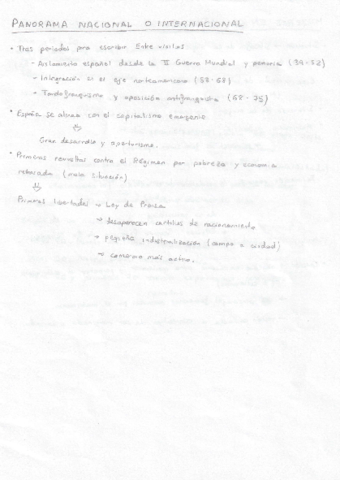 PANORAMA NACIONAL O INTERNACIONAL
• Tres periodos para escribir Entre visillos:
- Aislamiento español desde la II Guerra Mundial y penuria (39-52)
- Integración en el eje norteamericano (53-68)
- Tardofranquismo y oposición antifranquista (68-75)
• España se alinea con el capitalismo emergente
Gran desarrollo y aperturismo.
• Primeras revueltas contra el Régimen por pobreza y economía
retrasada. (mala situación)
Primeras libertades → Ley de Prensa
→ desaparecen cartillas de racionamiento
→ pequeña industrialización (campo a ciudad)
→ consumo más activo.